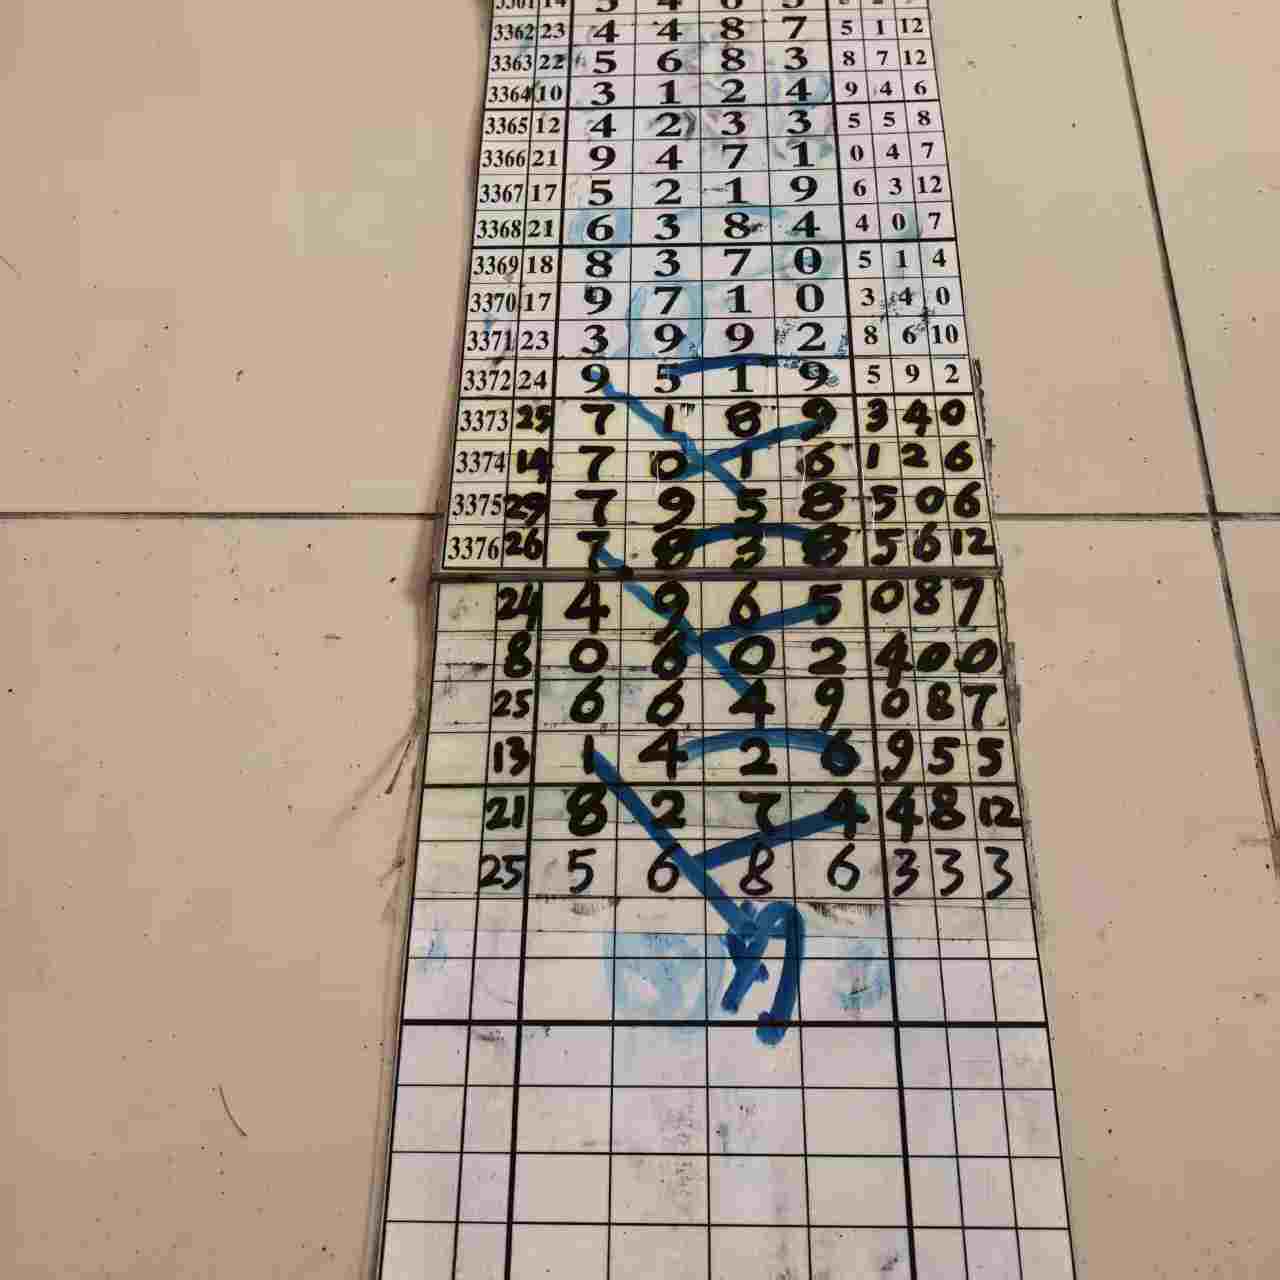 3362 23 4 4 8 7 5 1 12
3363 22 5 6 8 3 8 7 12
3364 10 3 1 2 4 9 4 6
3365 12 4 2 3 3 5 5 8
3366 21 9 4 7 1 0 4 7
3367 17 5 2 1 9 6 3 12
3368 21 6 3 8 4 4 0 7
3369 18 8 3 7 0 5 1 4
3370 17 9 7 1 0 3 4 0
3371 23 3 9 9 2 8 6 10
3372 24 9 5 1 9 5 9 2
3373 25 7 1 8 9 3 4 0
3374 14 7 0 1 6 1 2 6
3375 29 7 9 5 8 5 0 6
3376 26 7 8 3 8 5 6 12
24 4 9 6 5 0 8 7
8 0 6 0 2 4 0 0
25 6 6 4 9 0 8 7
13 1 4 2 6 9 5 5
21 8 2 7 4 4 8 12
25 5 6 8 6 3 3 3